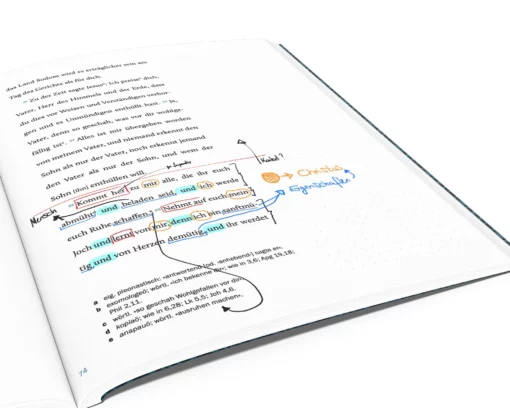 das Land Sodom wird es erträglicher sein am
Tag des Gerichts als für dich.
Zu der Zeit sagte Jesus: Ich preise dich,
Vater, Herr des Himmels und der Erde, dass
du dies vor Weisen und Verständigen verbor-
gen und es Unmündigen enthüllt hast. Ja,
Vater, denn so geschah, was dir wohlge-
fällig ist. Alles ist mir übergeben worden
von meinem Vater, und niemand erkennt den
Sohn als nur der Vater, noch erkennt jemand
den Vater als nur der Sohn, und wem der
Sohn ihn enthüllen will.
Kommt her zu mir alle, die ihr euch
abmüht und beladen seid, und ich werde
euch Ruhe schaffen. Nehmt auf euch mein
Joch und lernt von mir, denn ich bin sanftmü-
tig und von Herzen demütig, und ihr werdet
Mensch
→ Christus
Eigenschaften
a eig. pleonastisch: »antwortend (od. »anhebend«) sagte er«.
b exomologeō; wörtl. »ich bekenne dir«; wie in 3,6; Apg 19,18;
Phil 2,11.
c wörtl. »so geschah Wohlgefallen vor dir«.
d kopiaō; wie in 6,28; Lk 5,5; Joh 4,6.
e anapauō; wörtl. »ausruhen machen«.
74